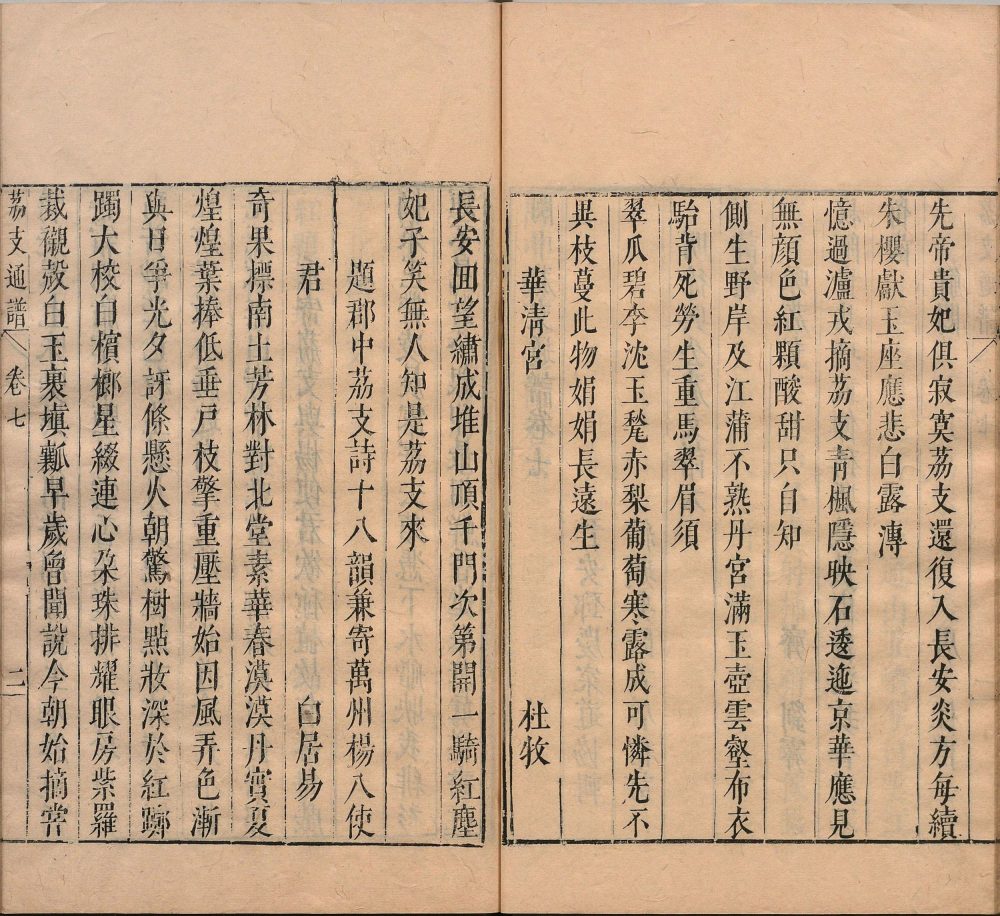 先帝貴妃俱寂寞荔支還復入長安炎方每續
朱櫻獻玉座應悲白露漙
憶過瀘戎摘荔支青楓隱映石逶迤京華應見
無顔色紅顆酸甜只自知
側生野岸及江蒲不熟丹宮滿玉壺雲壑布衣
駘背死勞生重馬翠眉須
翠瓜碧李沈玉甃赤梨葡萄寒露成可憐先不
異枝蔓此物娟娟長遠生
華淸宮 杜牧
長安囬望繡成堆山頂千門次第開一騎紅塵
妃子笑無人知是荔支來
題郡中荔支詩十八韻兼寄萬州楊八使
君 白居易
奇果標南土芳林對北堂素華春漠漠丹實夏
煌煌葉捧低垂戸枝擎重壓牆始因風弄色漸
與日爭光夕訝條懸火朝驚樹點妝深於紅躑
躅大校白檳榔星綴連心朶珠排耀眼房紫羅
裁襯殻白玉裹塡瓤早歲曾聞說今朝始摘嘗
荔支通譜 卷七 二